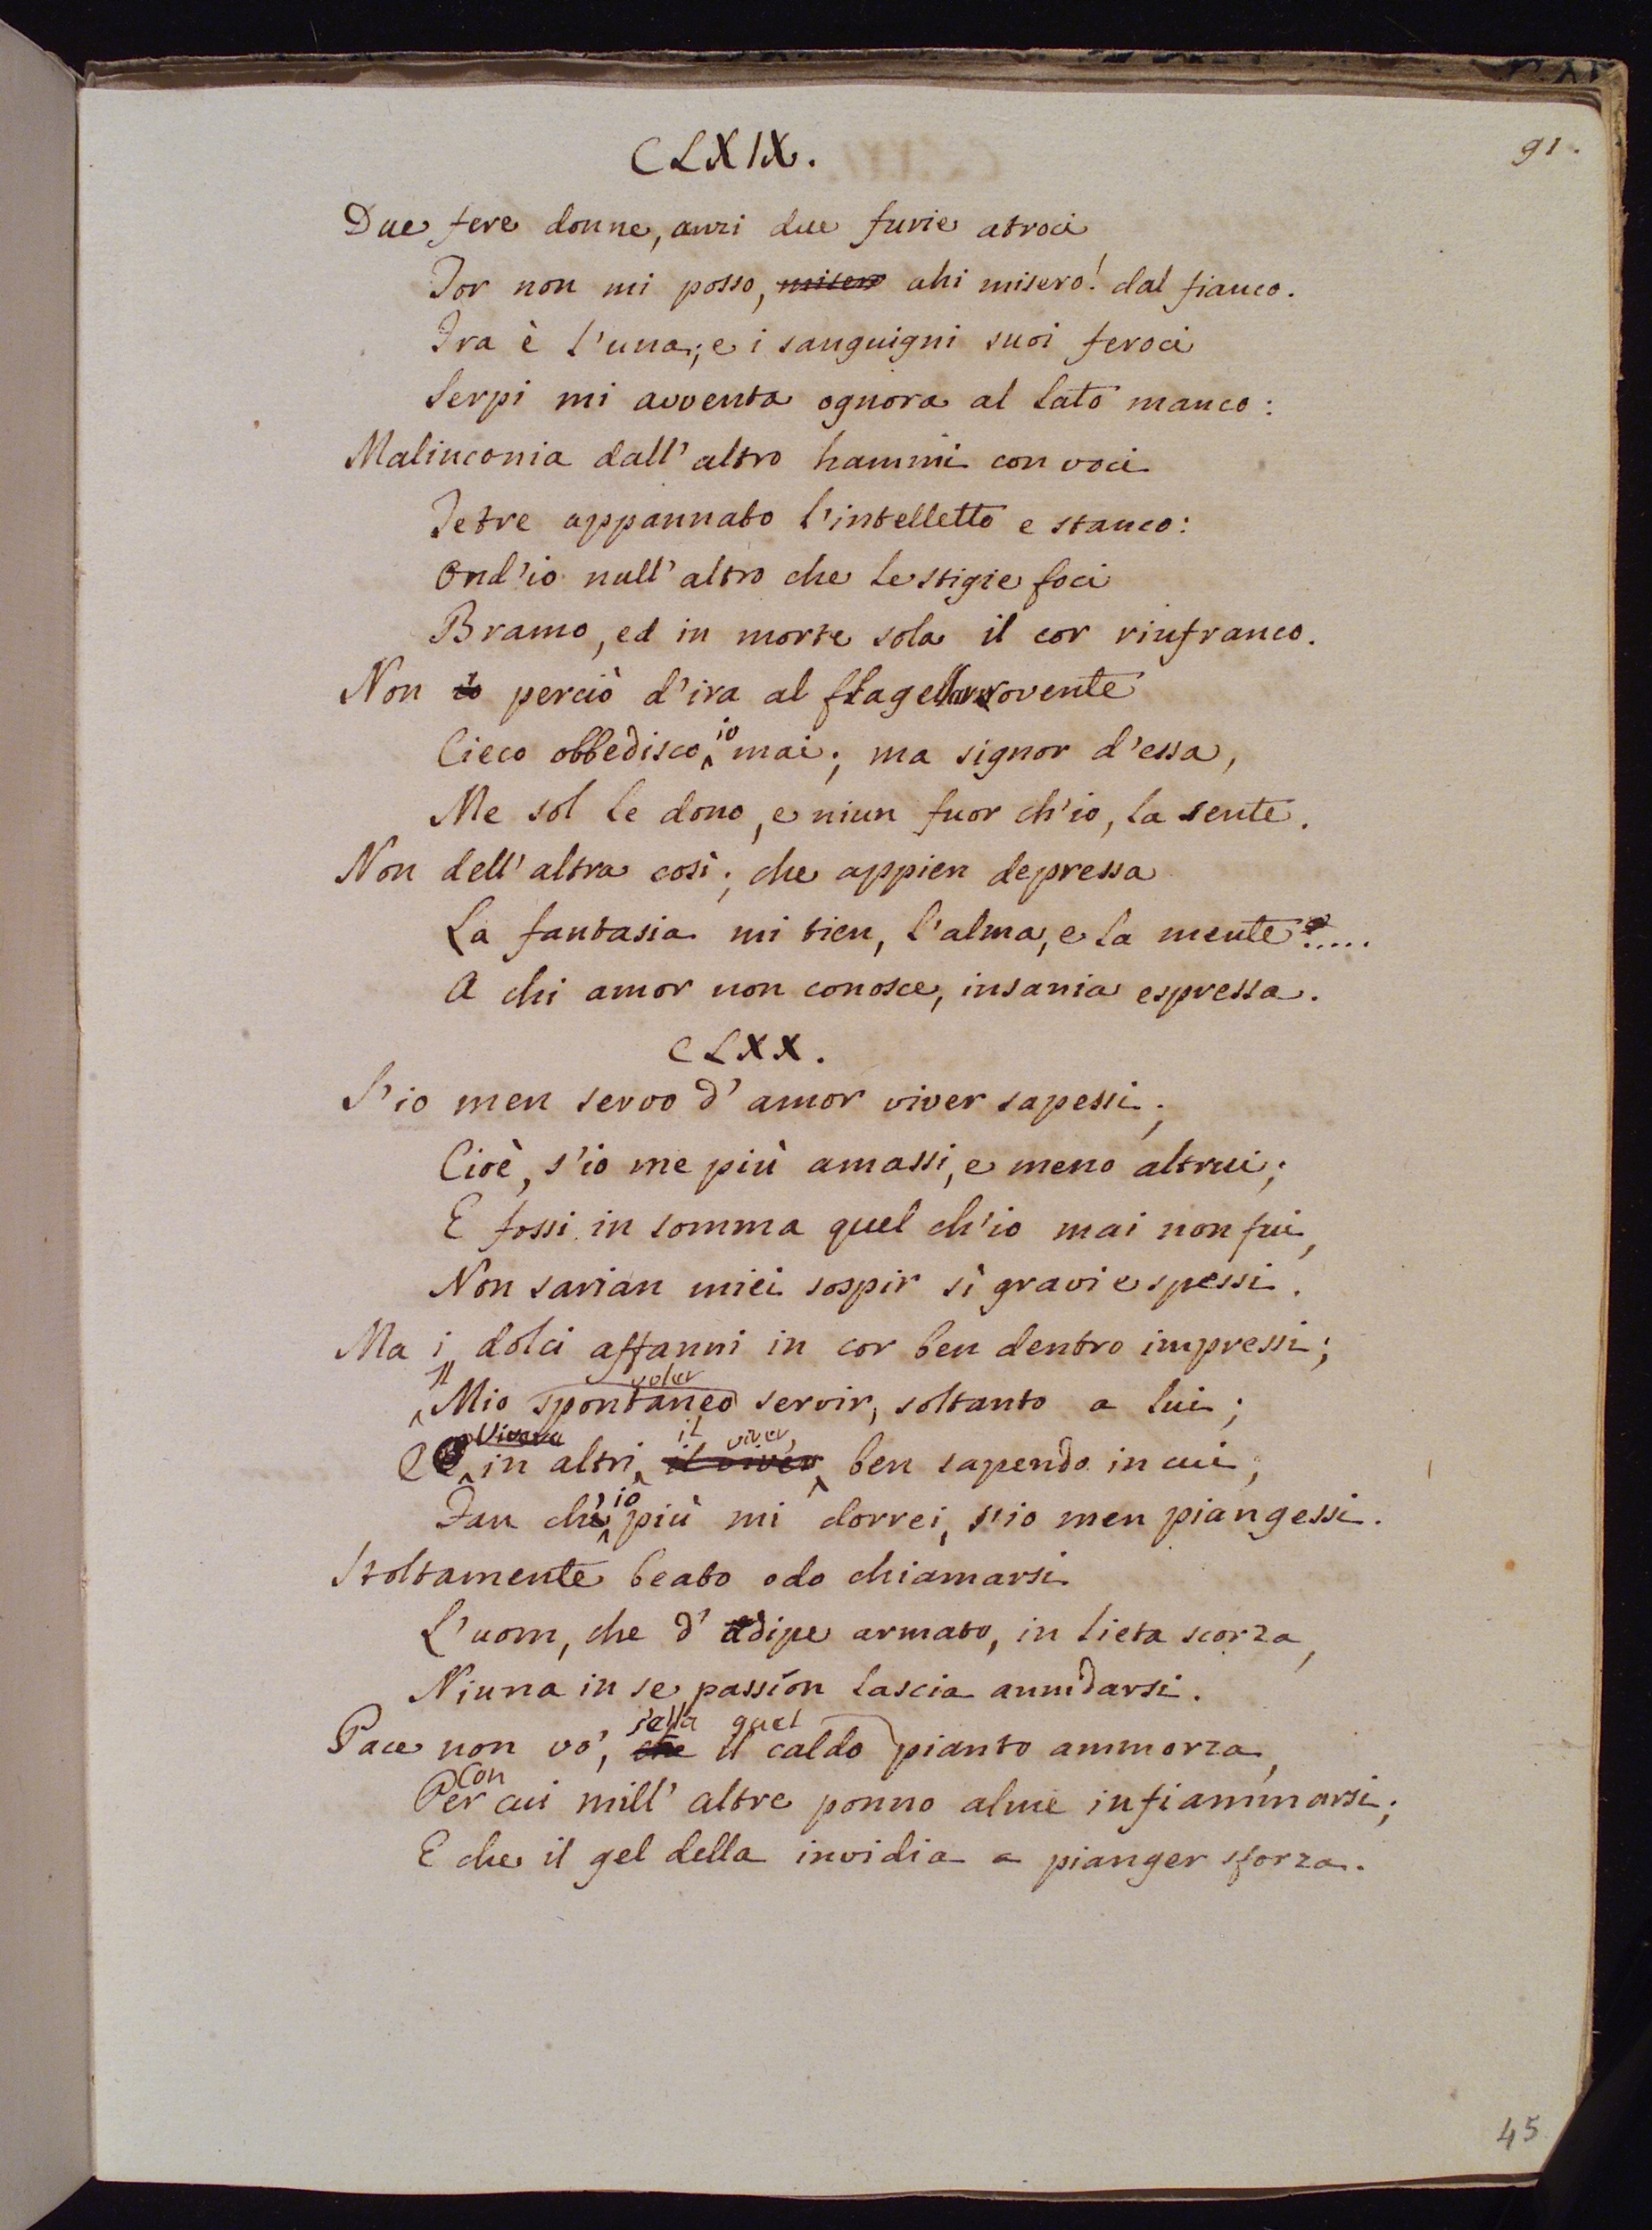 91.
CLXIX.
Due fere donne, anzi due furie atroci
Tor non mi posso, misero ahi misero! dal fianco.
Ira è l'una; e i sanguigni suoi feroci
Serpi mi avventa ognora al lato manco:
Malinconia dall'altro hammi con voci
Tetre appannato l'intelletto e stanco:
Ond'io null'altro che le stigie foci
Bramo, ed in morte sola il cor rinfranco.
Non io perciò d'ira al flagello rovente
Cieco obbedisco io mai; ma signor d'essa,
Me sol le dono, e niun fuor ch'io, la sente.
Non dell'altra così; che appien depressa
La fantasia mi tien, l'alma, e la mente.....
A chi amor non conosce, insania espressa.
CLXX.
S'io men servo d'amor viver sapessi;
Cioè, s'io me più amassi, e meno altrui;
E fossi in somma quel ch'io mai non fui,
Non sarian miei sospir sì gravi e spessi.
Ma i dolci affanni in cor ben dentro impressi;
Il voler
Mio spontaneo servir, soltanto a lui;
Vivere il viver,
E in altri, il viver ben sapendo in cui;
Fan ch'io più mi dorrei, s'io men piangessi.
Stoltamente beato odo chiamarsi
L'uom, che d'adipe armato, in lieta scorza,
Niuna in se passion lascia annidarsi.
s'ella quel
Pace non vo', che il caldo pianto ammorza,
Con
Per cui mill'altre ponno alme infiammarsi;
E che il gel della invidia a pianger sforza.
45